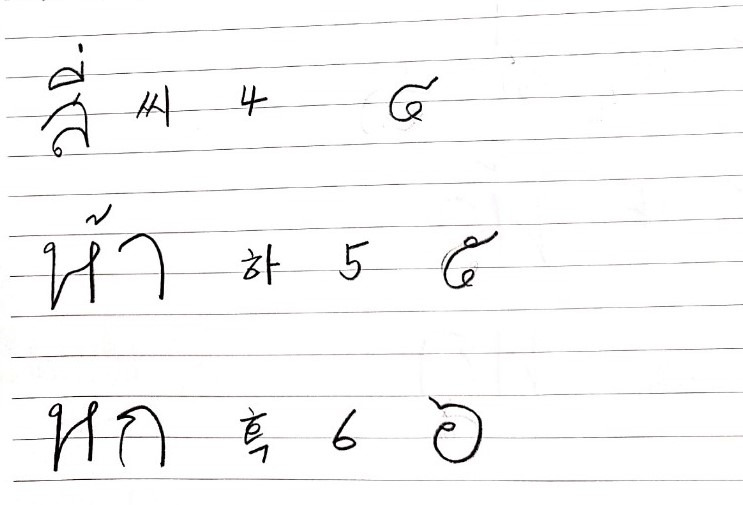 สี่ 씨 4 ๔
ห้า 하 5 ๕
หก 혹 6 ๖